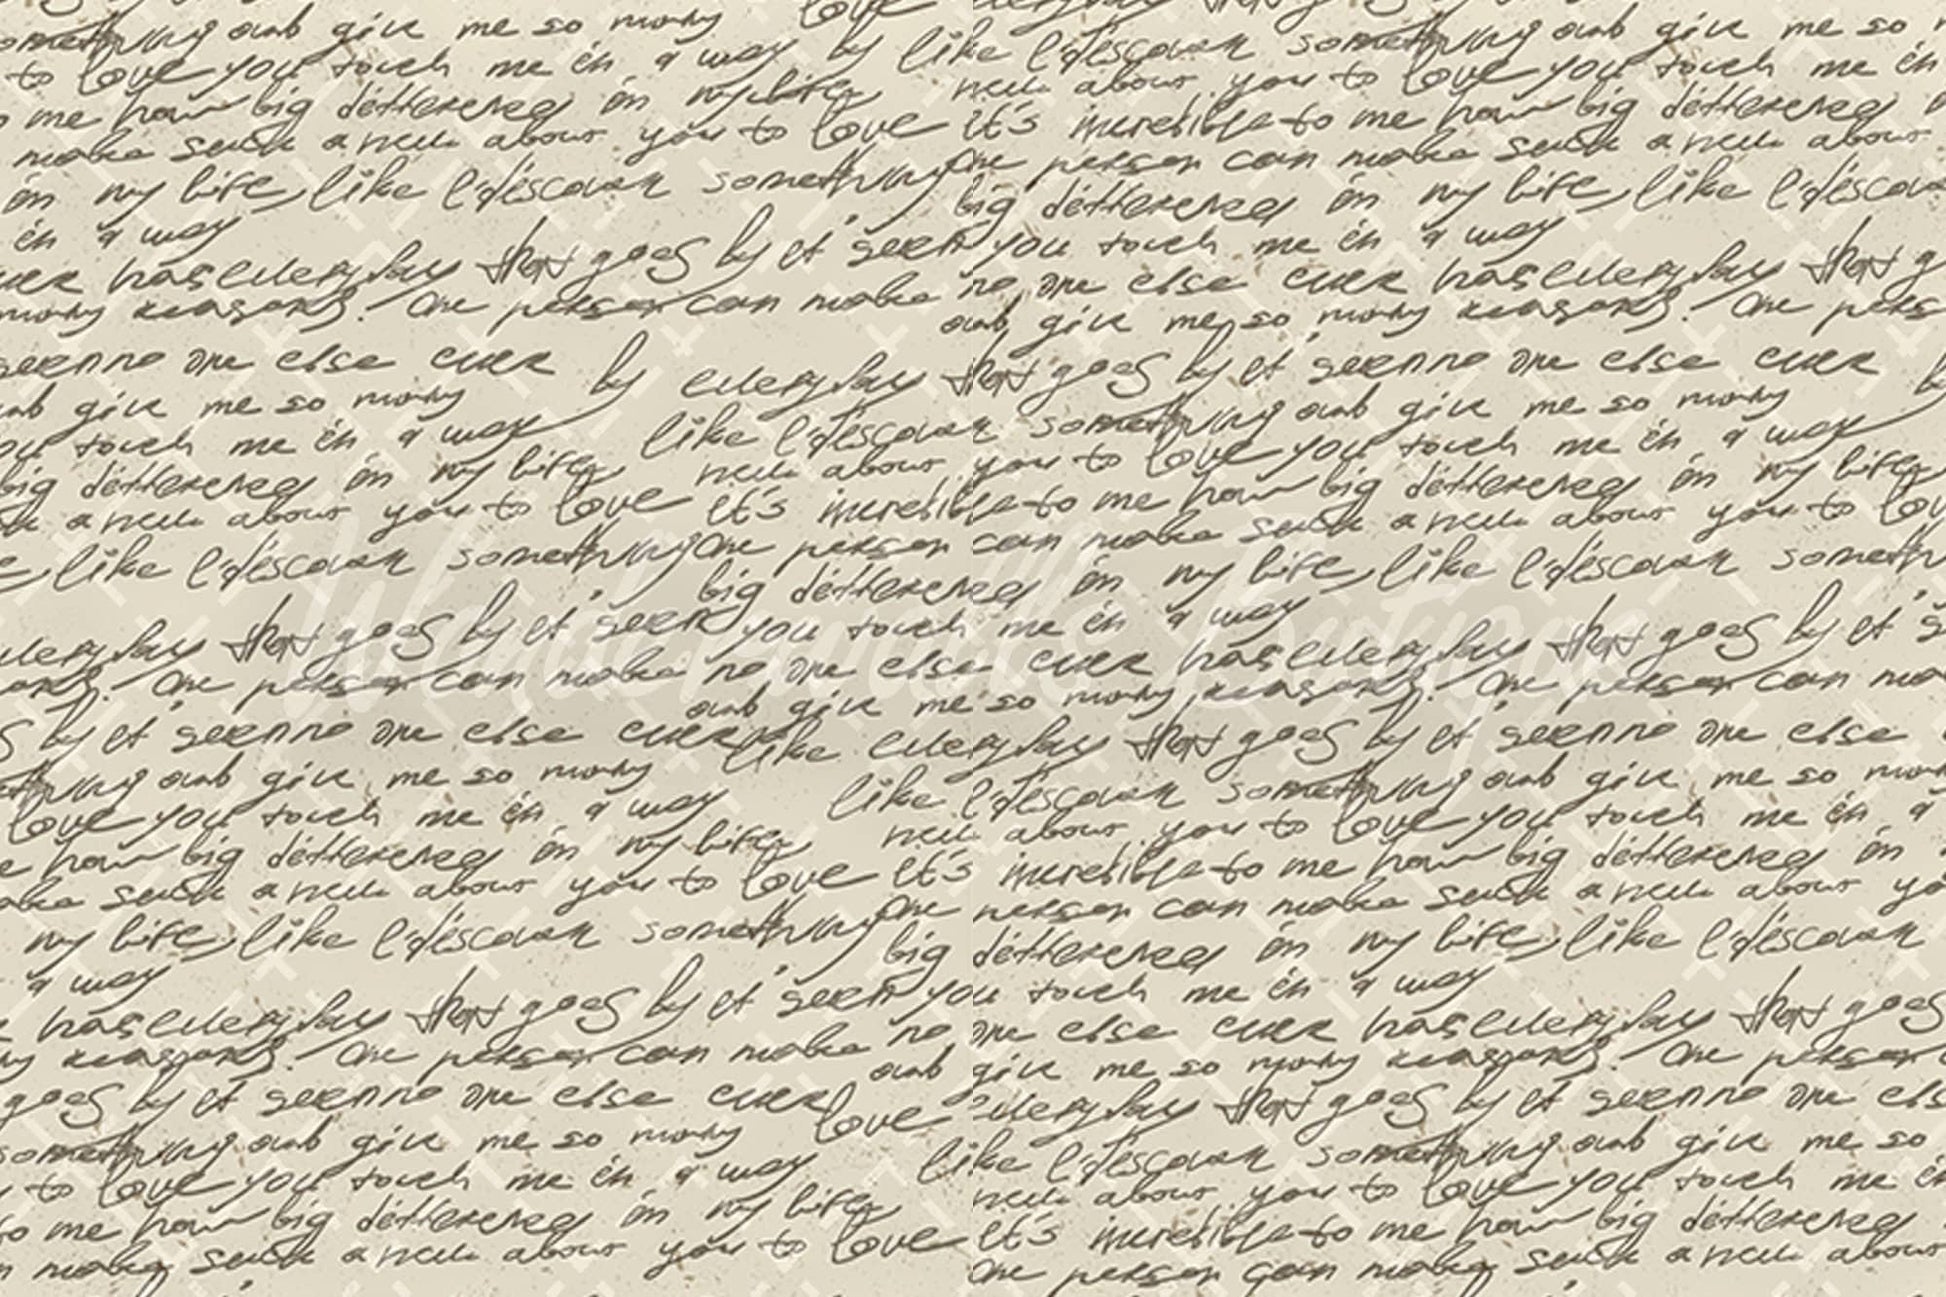 love everyday that goes
something and give me so many love like I discover something and give me so
to love you touch me in a way by new about you to love you touch me in
to me how big difference in my life it's incredible to me how big difference
make such a new about you to love One person can make such a new about
in my life, like I discover something big difference in my life, like I discover
in a way you touch me in a way
ever has everyday that goes by it seem no one else ever has everyday that
many reasons. One person can make and give me so many reasons. One pers
seem no one else ever by everyday that goes by it seem no one else ever
and give me so many like I discover something and give me so many
you touch me in a way new about you to love you touch me in a way
big difference in my life it's incredible to me how big difference in my life
a new about you to love One person can make such a new about you to love
like I discover something big difference in my life, like I discover something
you touch me in a way
everyday that goes by it seem no one else ever has everyday that goes by it
One person can make and give me so many reasons. One person can
by it seem no one else ever like everyday that goes by it seem no one else
something and give me so many like I discover something and give me so many
love you touch me in a way new about you to love you touch me in a
how big difference in my life it's incredible to me how big difference in
make such a new about you to love One person can make such a new about
my life, like I discover something big difference in my life, like I discover
a way you touch me in a way
has everyday that goes by it seem no one else ever has everyday that goes
reasons. One person can make and give me so many reasons. One person
goes by it seem no one else ever love everyday that goes by it seem no one
something and give me so many like I discover something and give me so
to love you touch me in a way new about you to love you touch me
to me how big difference in my life it's incredible to me how big difference
make such a new about you to love One person can make such a new about